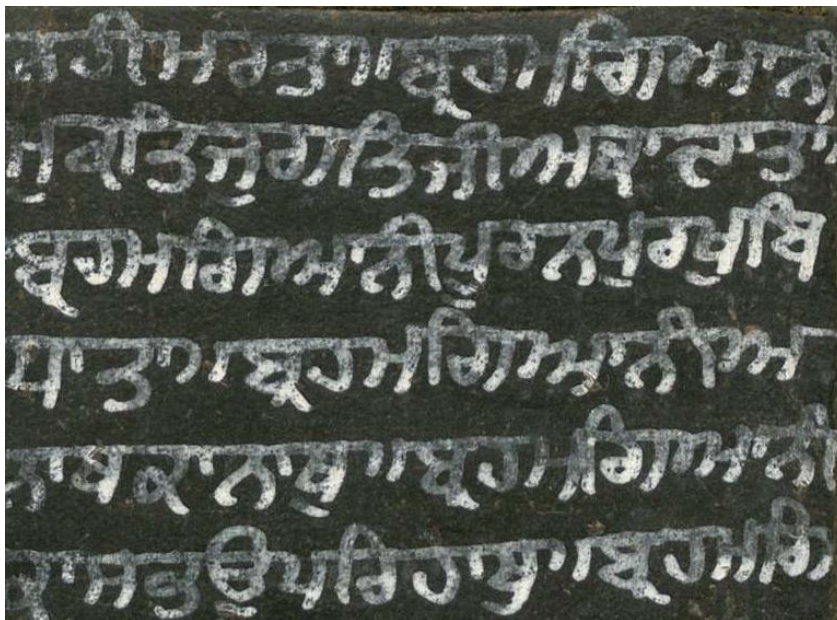 ਨਹੀਮਰਤਾ॥ਬ੍ਰਹਮਗਿਆਨੀ
ਮੁਕਤਿਜੁਗਤਿਜੀਅਕਾਦਾਤਾ
ਬ੍ਰਹਮਗਿਆਨੀਪੂਰਨਪੁਰਖੁਬਿ
ਧਾਤਾ॥ਬ੍ਰਹਮਗਿਆਨੀਅ
ਨਾਥਕਾਨਾਥੁ॥ਬ੍ਰਹਮਗਿਆਨੀ
ਕਾਸਭਊਪਰਿਹਾਥੁ॥ਬ੍ਰਹਮਗਿ